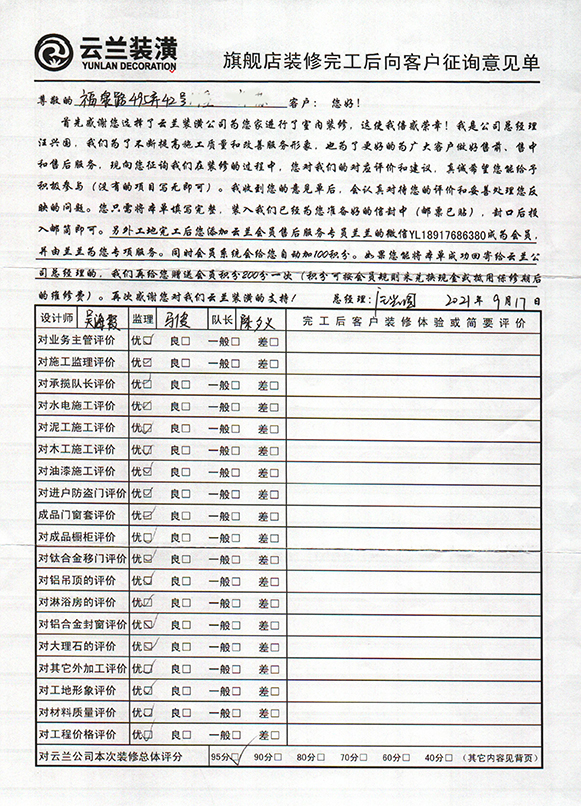 云兰装潢
YUNLAN DECORATION
旗舰店装修完工后向客户征询意见单
尊敬的 福泉路495弄42号 客户：您好！
首先感谢您选择了云兰装潢公司为您家进行了室内装修，这使我倍感荣幸！我是公司总经理
汪兴国，我们为了不断提高施工质量和改善服务形象，也为了更好的为广大客户做好售前、售中
和售后服务，现向您征询我们在装修的过程中，您对我们的对应评价和建议，真诚希望您能给予
积极参与（没有的项目写无即可）。我收到您的意见单后，会认真对待您的评价和妥善处理您反
映的问题。您只需将本单填写完整，装入我们已经为您准备好的信封中（邮票已贴），封口后投
入邮筒即可。另外工地完工后您添加云兰会员售后服务专员兰兰的微信YL18917686380成为会员，
并由兰兰为您专项服务。同时会员系统会给您自动加100积分。如果您能将本单成功回寄给云兰公
司总经理的，我们再给您赠送会员积分200分一次（积分可按会员规则来兑换现金或抵用保修期后
的维修费）。再次感谢您对我们云兰装潢的支持！ 总经理：汪兴国 2021年9月17日
设计师 监理 马俊 队长 完工后客户装修体验或简要评价
对业务主管评价 优☑ 良□ 一般□ 差□
对施工监理评价 优☑ 良□ 一般□ 差□
对承揽队长评价 优☑ 良□ 一般□ 差□
对水电施工评价 优☑ 良□ 一般□ 差□
对泥工施工评价 优☑ 良□ 一般□ 差□
对木工施工评价 优☑ 良□ 一般□ 差□
对油漆施工评价 优☑ 良□ 一般□ 差□
对进户防盗门评价 优☑ 良□ 一般□ 差□
成品门窗套评价 优☑ 良□ 一般□ 差□
对成品橱柜评价 优☑ 良□ 一般□ 差□
对钛合金移门评价 优☑ 良□ 一般□ 差□
对铝吊顶的评价 优☑ 良□ 一般□ 差□
对淋浴房的评价 优☑ 良□ 一般□ 差□
对铝合金封窗评价 优☑ 良□ 一般□ 差□
对大理石的评价 优☑ 良□ 一般□ 差□
对其它外加工评价 优☑ 良□ 一般□ 差□
对工地形象评价 优☑ 良□ 一般□ 差□
对材料质量评价 优☑ 良□ 一般□ 差□
对工程价格评价 优☑ 良□ 一般□ 差□
对云兰公司本次装修总体评分 95分☑ 90分□ 80分□ 70分□ 60分□ 40分□ （其它内容见背页）